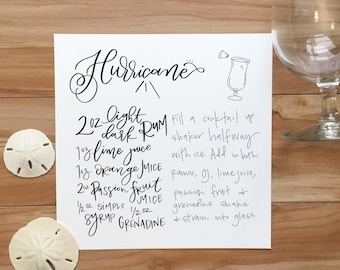 Hurricane
2 oz light
dark Rum
1 oz lime juice
1 oz orange JUICE
2 oz Passion fruit
JUICE
1/2 oz SIMPLE 1/2 oz
syrup GRENADINE
Fill a cocktail up
shaker halfway
with ice. Add in both
rums, OJ, lime juice,
passion fruit &
grenadine. Shake
& strain into glass